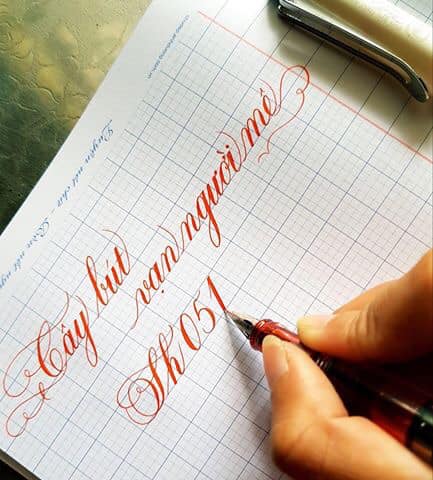 Cây bút
vạn người mê
Sh 051
Luyện nét chữ - Rèn nết ngư